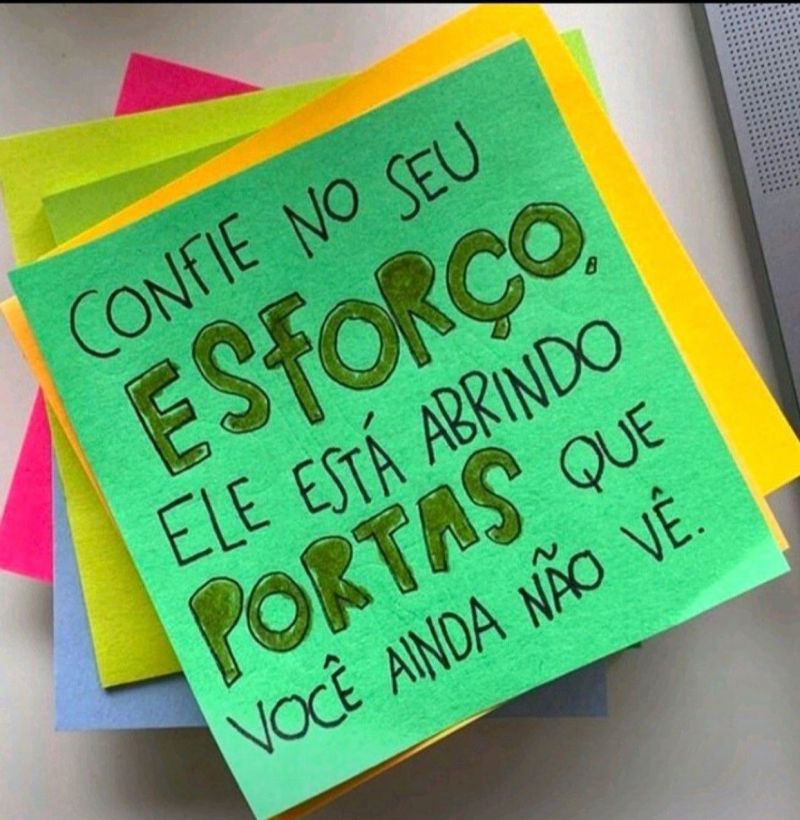 CONFIE NO SEU
ESFORÇO,
ELE ESTÁ ABRINDO
PORTAS QUE
VOCÊ AINDA NÃO VÊ.